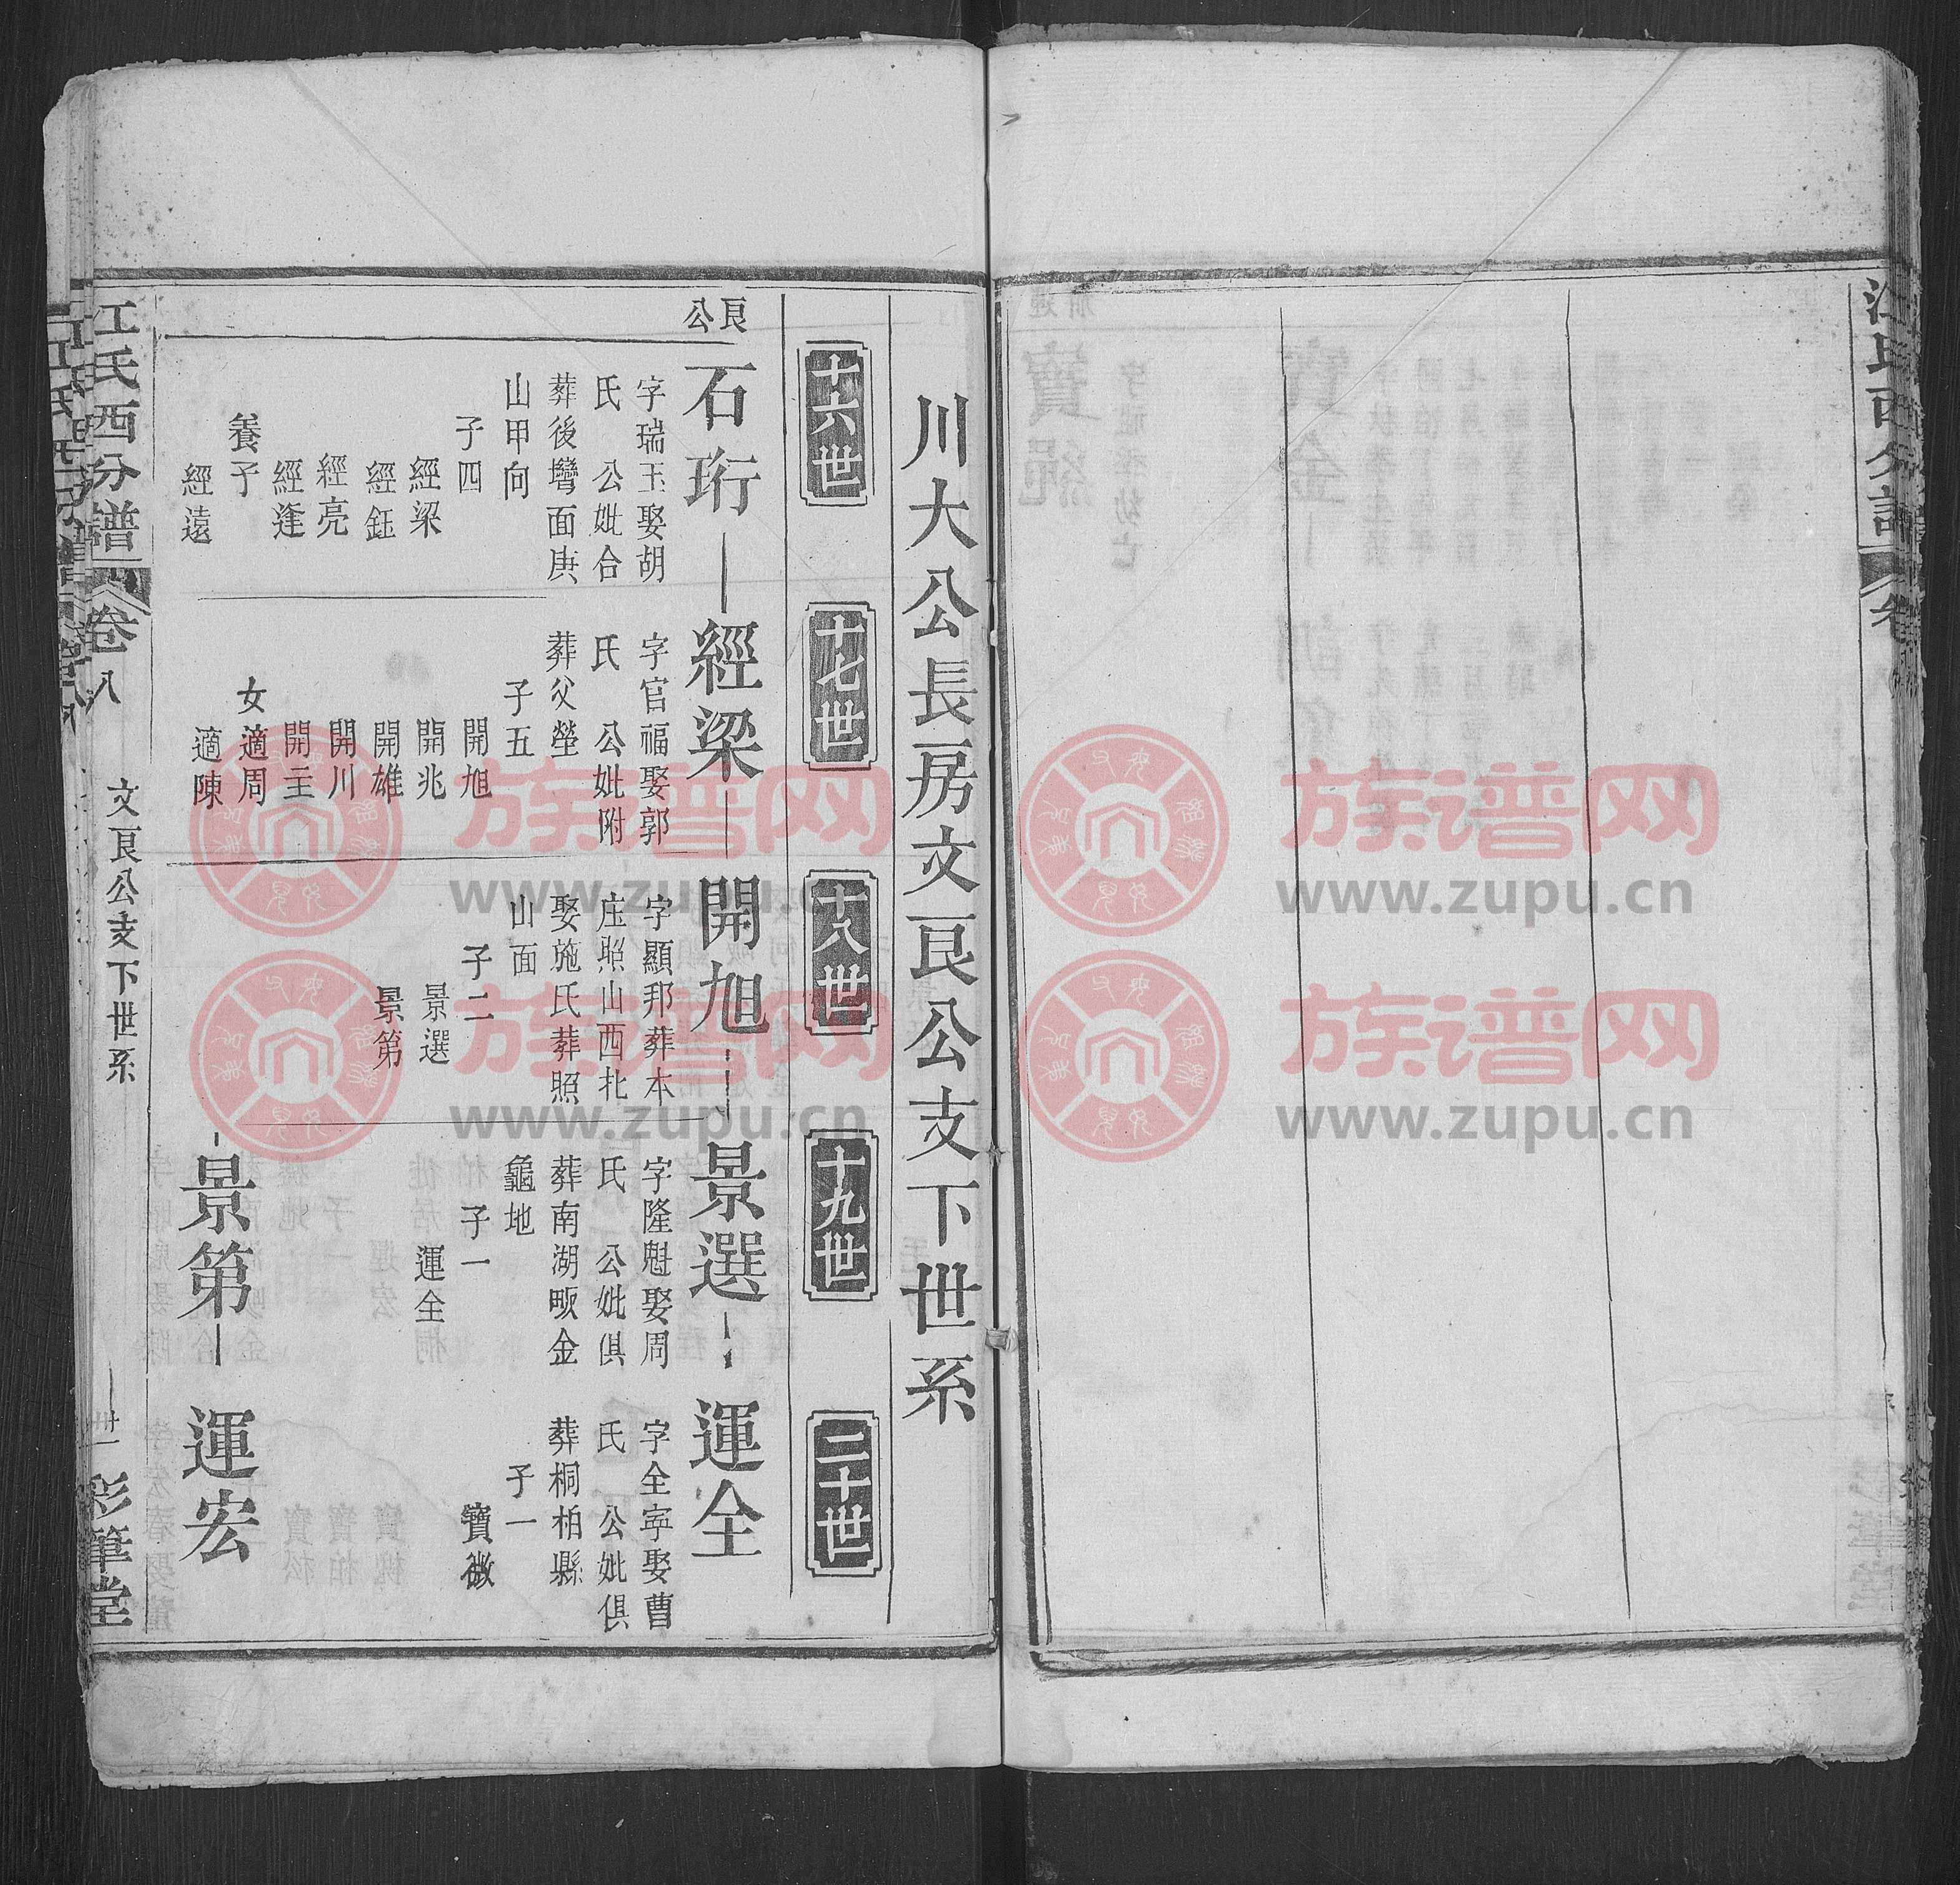 川大公長房文艮公支下世系
十六世
十七世
十八世
十九世
二十世
艮公
石珩
字瑞玉娶胡
氏 公妣合
葬後灣面庚
山甲向
子四
經梁
經鈺
經亮
經逢
養子
經遠
經梁
字官福娶郭
氏 公妣附
葬父塋
子五
開旭
開兆
開雄
開川
開主
女適周
適陳
開旭
字顯邦葬本
庄照山西北
娶施氏葬照
山面
子二
景選
景第
景選
字隆魁娶周
氏 公妣俱
葬南湖畈金
龜地
子一
運全
景第
運全
字全寧娶曹
氏 公妣俱
葬桐柏縣
子一
寶徽
運宏
江氏西分譜
卷八
文艮公支下世系
卅一
彩筆堂
江氏西分譜
卷
族谱网
www.zupu.cn
族谱网
www.zupu.cn
族谱网
www.zupu.cn
族谱网
www.zupu.cn